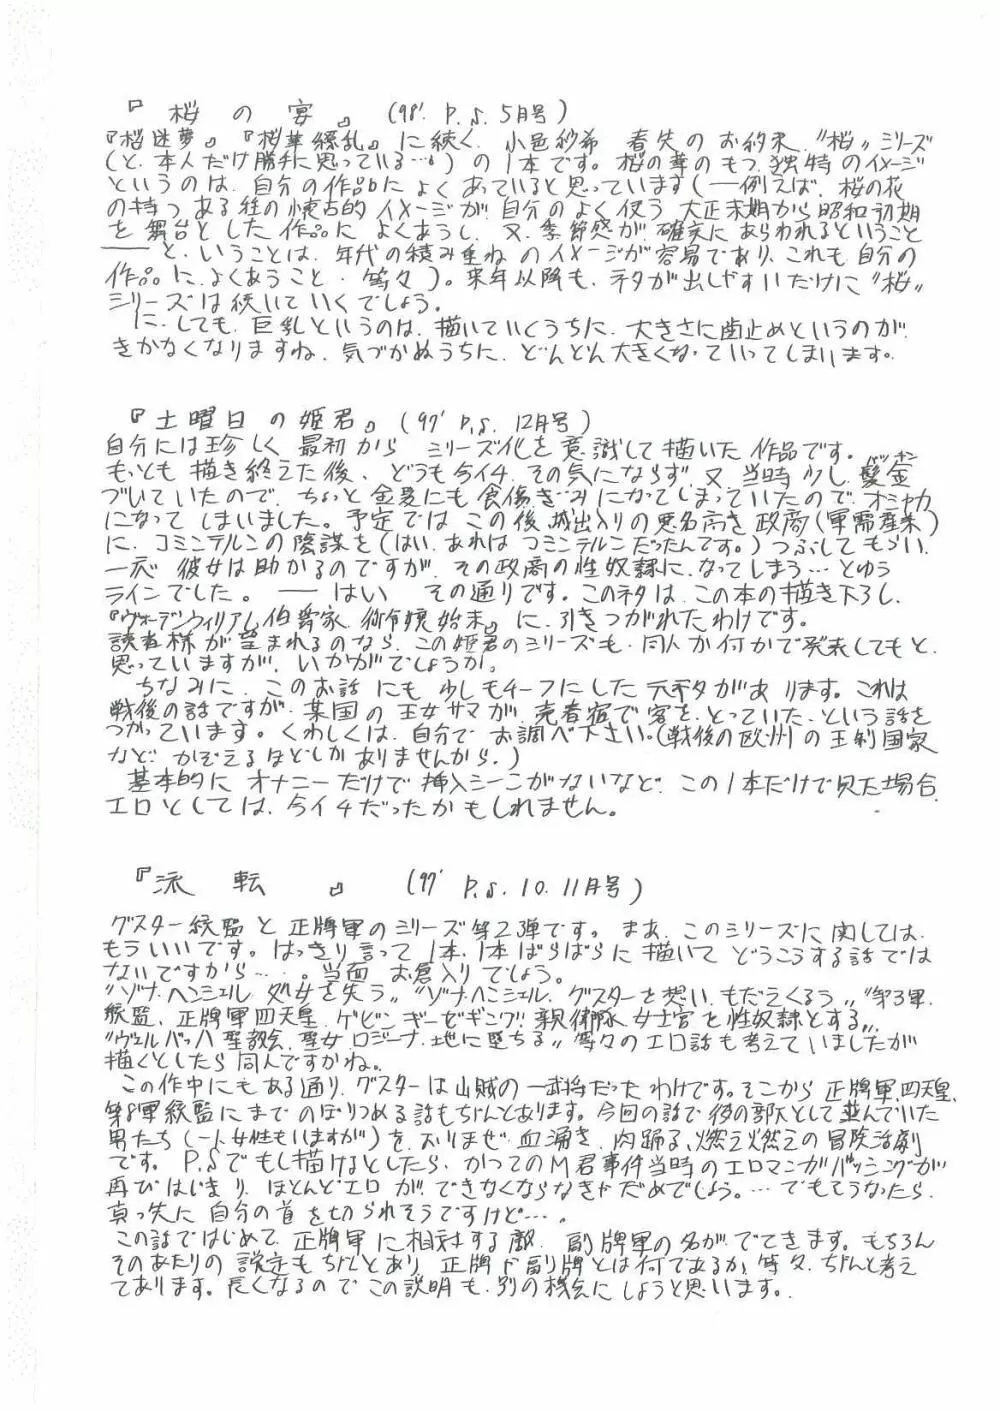 『桜の宴』 (98' P.S. 5月号)
『桜迷夢』『桜華繚乱』に続く、小邑紗希 春失のお約束、〃桜〃シリーズ
(と、本人だけ勝手に思っている…。)の1本です。桜の華のもつ、独特のイメージ
というのは、自分の作品に、よくあっていると思っています(――例えば、桜の花
の持つ、ある種の懐古的イメージが、自分のよく使う、大正末期から昭和初期
を舞台とした作品に、よくあうし、又、季節感が確実にあらわれるということ
――と、いうことは、年代の積み重ねのイメージが容易であり、これも自分の
作品に、よくあうこと・等々)。来年以降も、ネタが出しやすいだけに〃桜〃
シリーズは続いていくでしょう。
に、しても、巨乳というのは、描いていくうちに、大きさに歯止めというのが、
きかなくなりますね、気づかぬうちに、どんどん大きくなっていってしまいます。
『土曜日の姫君』(97' P.S. 12月号)
自分には珍しく、最初から シリーズ化を意識して描いた作品です。
もっとも描き終えた後、どうも今イチ、その気にならず、又、当時少し、髪金
づいていたので、ちょっと金髪にも食傷ぎみになってしまっていたので、オシャカ
になってしまいました。予定では、この後、城出入りの悪名高き政商(軍需産業)
に、コミンテルンの陰謀を(はい、あれはコミンテルンだったんです。)つぶしてもらい、
一応 彼女は助かるのですが、その政商の性奴隷に、なってしまう…とゆう
ラインでした。――はい その通りです。このネタは、この本の描き下ろし、
『ヴォーデンウィリアム伯爵家 御令嬢始末』に、引きつがれたわけです。
読者様が望まれるのなら、この姫君のシリーズも、同人か何かで発表してもと、
思っていますが、いかがでしょうか。
ちなみに、このお話にも 少しモチーフにした元ネタがあります。これは
戦後の話ですが、某国の王女サマが、売春宿で客を、とっていた、という話を
つかっています。くわしくは、自分で お調べ下さい。(戦後の欧州の王制国家
など、かぞえるほどしかありませんから。)
基本的にオナニーだけで挿入シーンがないなど、この1本だけで見た場合、
エロとしては、今イチだったかもしれません。
『流転』 (97' P.S. 10. 11月号)
グスター統監と正牌軍のシリーズ第2弾です。まあ、このシリーズに関しては、
もういいです。はっきり言って1本、1本ばらばらに描いて どうこうする話では
ないですから…。当面 お倉入りでしょう。
〃ゾナ・ヘンシェル 処女を失う〃〃ゾナ・ヘンシェル、グスターを想い、もだえくるう〃〃第3軍
統監、正牌軍四天王、ゲビン・ギーゼギング!! 親衛隊女士官を性奴隷とする〃
〃ヴェルバッハ聖教会、聖女ロジーナ、地に堕ちる〃等々のエロ話も考えていましたが
描くとしたら同人ですかね。
この作中にもある通り、グスターは山賊の一武将だったわけです。そこから正牌軍四天王、
第8軍統監にまでのぼりつめる話もちゃんとあります。今回の話で後の部下として並んでいた
男たち(一人女性もいますが)を、おりまぜ、血湧き、肉踊る、燃え燃えの冒険活劇
です。P.Sでもし描けるとしたら、かつてのM君事件当時のエロマンガバッシングが
再びはじまり、ほとんどエロが、できなくならなきゃだめでしょう。…でもそうなったら、
真っ先に自分の首を切られそうですけど…。
この話ではじめて、正牌軍に相対する敵、副牌軍の名がでてきます。もちろん
そのあたりの設定もちゃんとあり、正牌・副牌とは何であるか、等々、ちゃんと考え
てあります。長くなるのでこの説明も、別の機会にしようと思います。